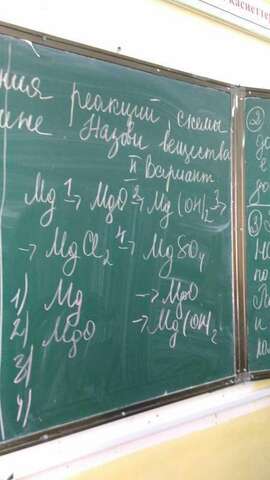 Каспетте
ния реакций схемы
ине Назови вещества
II Вариант
Mg 1→ MgO 2→ Mg(OH)₂ 3→
→ MgCl₂ 4→ MgSO₄
1) Mg → MgO
2) MgO → Mg(OH)₂
3)
4)
2
до
е
до
3
На
по
и